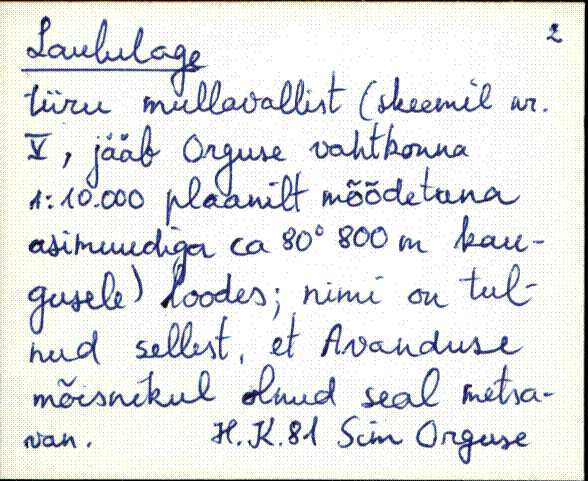 2
Laululage
tiiru mullavallist (skeemil nr.
V, jääb Orguse vahtkonna
1:10.000 plaanilt mõõdetuna
asimuudiga ca 80° 800 m kau-
gusele) loodes; nimi on tul-
nud sellest, et Avanduse
mõisnikul olnud seal metsa-
van. H.K.81 Sim Orguse